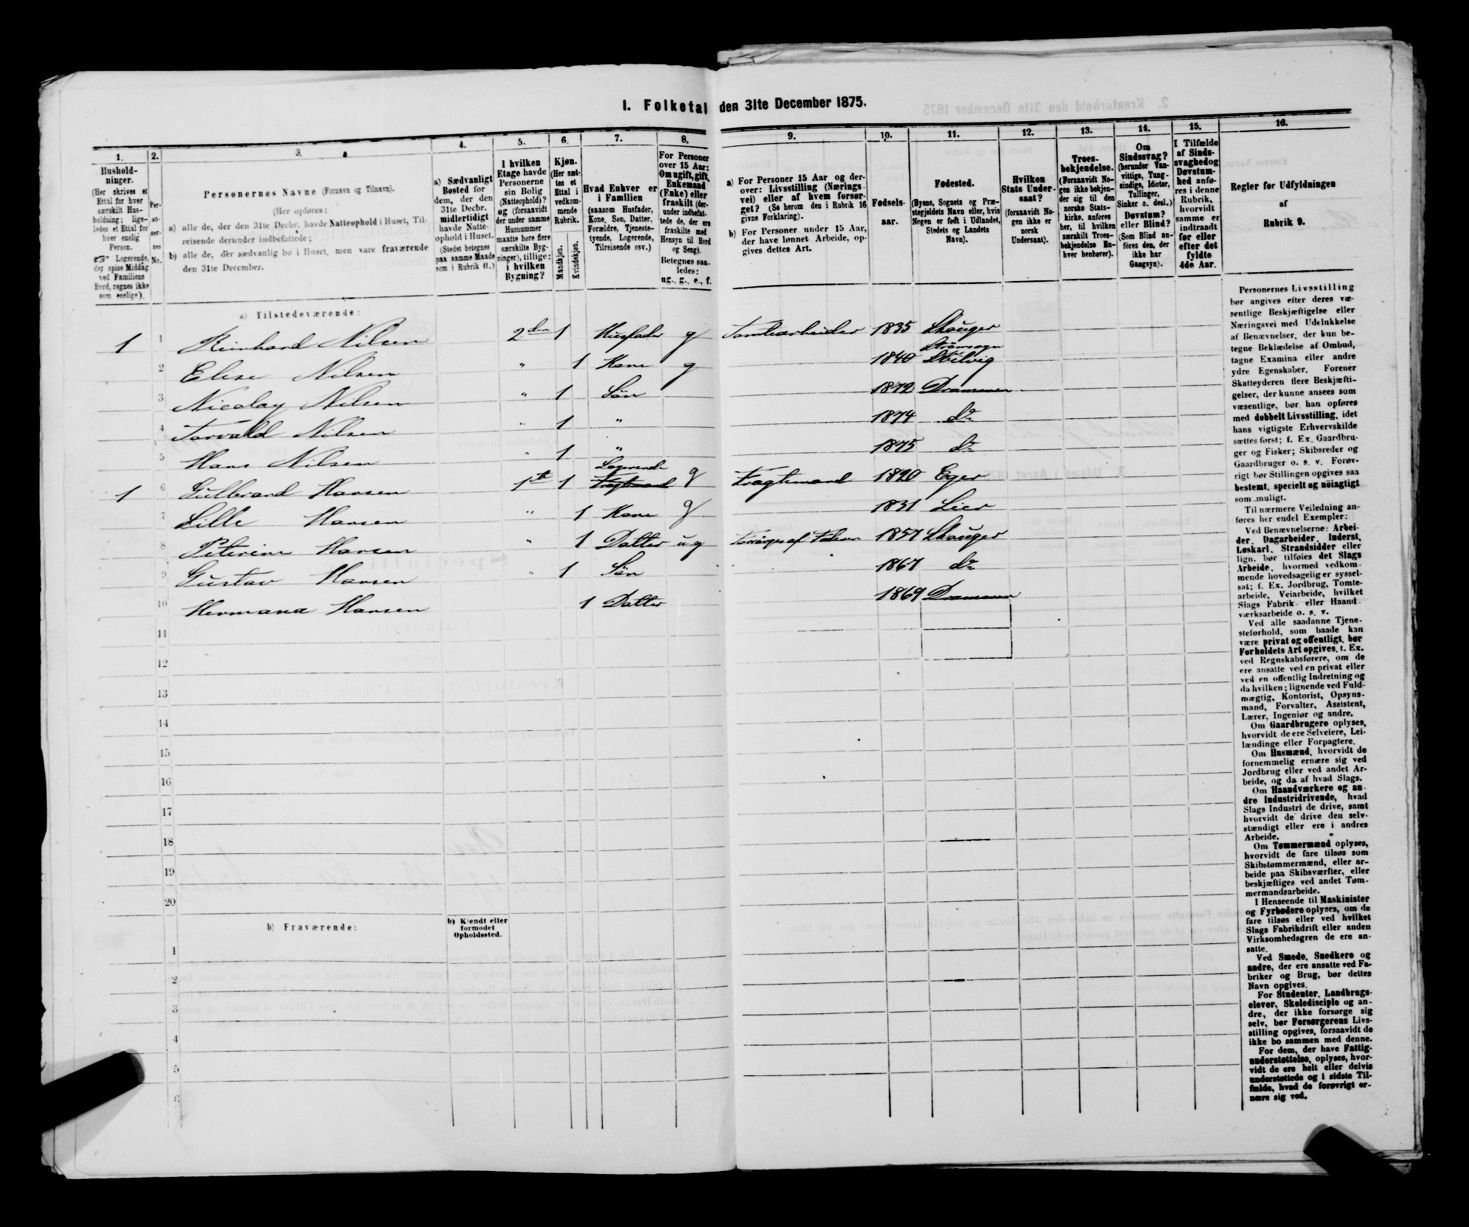 1. Folketal den 31te December 1875.
1. 2. 3. 4. 5. 6. 7. 8. 9. 10. 11. 12. 13. 14. 15. 16.
Hushold-
ninger.
(Her skrives et
Ettal for hver
særskilt Hus-
holdning; lige-
ledes et Ettal for
hver enslig
Person.
Logerende,
der spise Middag
ved Familiens
Bord, regnes ikke
som enslige).
Per-
so-
ner-
nes
No.
Personernes Navne (Fornavn og Tilnavn).
(Her opføres:
a) alle de, der den 31te Decbr. havde Natteophold i Huset, Til-
reisende derunder indbefattede;
b) alle de, der sædvanlig bo i Huset, men vare fraværende
den 31te December.
a) Sædvanligt
Bosted for
dem, der den
31te Decbr.
midlertidigt
havde Natte-
ophold i Huset.
(Stedet betegnes
paa samme Maade
som i Rubrik 11.)
I hvilken
Etage havde
Personerne
sin Bolig
(Natteophold)?
og (forsaavidt
der under samme
Husnummer
maatte høre flere
særskilte Byg-
ninger), tillige:
i hvilken
Bygning?
Kjøn.
(Her sæt-
tes et
Ettal i
vedkom-
mende
Rubrik.
Mandkjøn.
Kvindekjøn.
Hvad Enhver er
i Familien
(saasom Husfader,
Kone, Søn, Datter,
Forældre, Tjeneste-
tyende, Logerende,
Tilreisende osv.)
For Personer
over 15 Aar:
Om ugift, gift,
Enkemand
(Enke) eller
fraskilt (der-
under indbefat-
tede de, der ere
fraskilte med
Hensyn til Bord
og Seng).
Betegnes saa-
ledes:
ug., g., e., f.
a) For Personer 15 Aar og der-
over: Livsstilling (Nærings-
vei) eller af hvem forsør-
get? (Se herom den i Rubrik 16
givne Forklaring).
b) For Personer under 15 Aar,
der have lønnet Arbeide, op-
gives dettes Art.
Fødsels-
aar.
Fødested.
(Byens, Sognets og Præ-
stegjeldets Navn eller, hvis
Nogen er født i Udlandet,
Stedets og Landets
Navn).
Hvilken
Stats Under-
saat?
(forsaavidt No-
gen ikke er
norsk
Undersaat).
Troes-
bekjendelse.
(Forsaavidt No-
gen ikke bekjen-
der sig til den
norske Stats-
kirke, anføres
her, til hvilken
særskilt Troes-
bekjendelse En-
hver henhører).
Om
Sindssvag?
(herunder Van-
vittige, Tung-
sindige, Idioter,
Tullinger,
Sinker o. desl.)
Døvstum?
eller Blind?
(Som Blind an-
føres den, der
ikke har
Gangsyn).
I Tilfælde
af Sinds-
svaghed og
Døvstum-
hed anfø-
res i denne
Rubrik,
hvorvidt
samme er
indtraadt
før eller
efter det
fyldte
4de Aar.
Regler for Udfyldningen
af
Rubrik 9.
a) Tilstedeværende:
1 1 Reinhard Nilsen 2den 1 Husfader g Tomtearbeider 1835 Skauger
2 Elise Nilsen " 1 Kone g 1840 Strømsogn
3 Nicolay Nilsen " 1 Søn 1872 Drammen
4 Torvald Nilsen " 1 " 1874 do
5 Hans Nilsen " 1 " 1875 do
1 6 Gulbrand Hansen 1ste 1 Logerende g Fragtemand 1820 Eger
7 Lille Hansen " 1 Kone g 1831 Lier
8 Peterine Hansen " 1 Datter ug 1857 Skauger
9 Gustav Hansen " 1 Søn 1867 do
10 Hermana Hansen 1 Datter 1869 Drammen
11
12
13
14
15
16
17
18
19
20
b) Fraværende:
b) Kjendt eller
formodet
Opholdssted.
1
2
3
4
5
6
Personernes Livsstilling
bør angives efter deres væ-
sentlige Beskjæftigelse eller
Næringsvei med Udelukkelse
af Benævnelser, der kun be-
tegne Beklædelse af Ombud,
tagne Examina eller andre
ydre Egenskaber. Forener
Skatteyderen flere Beskjæfti-
gelser, der kunne ansees som
væsentlige, bør han opføres
med dobbelt Livsstilling, idet
hans vigtigste Erhvervskilde
sættes først; f. Ex. Gaardbru-
ger og Fisker; Skibsreder og
Gaardbruger o. s. v. Forøv-
rigt bør Stillingen opgives saa
bestemt, specielt og nöiagtigt
som muligt.
Til nærmere Veiledning an-
føres her endel Exempler:
Ved Benævnelserne: Arbei-
der, Dagarbeider, Inderst,
Løskarl, Strandsidder eller
lign. bør tilføies det Slags
Arbeide, hvormed vedkom-
mende hovedsagelig er syssel-
sat; f. Ex. Jordbrug, Tomte-
arbeide, Veiarbeide, hvilket
Slags Fabrik- eller Haand-
værksarbeide o. s. v.
Ved alle saadanne Tjene-
steforhold, som baade kan
være privat og offentligt, bør
Forholdets Art opgives, t. Ex.
ved Regnskabsførere, om de
ere ansatte ved en privat eller
ved en offentlig Indretning og
da hvilken; lignende ved Fuld-
mægtig, Kontorist, Opsyns-
mand, Forvalter, Assistent,
Lærer, Ingeniør og andre.
Om Gaardbrugere oplyses,
hvorvidt de ere Selveiere, Lei-
lændinge eller Forpagtere.
Om Husmænd, hvorvidt de
fornemmelig ernære sig ved
Jordbrug eller ved andet Ar-
beide, og da af hvad Slags.
Om Haandværkere og an-
dre industridrivende, hvad
Slags Industri de drive, samt
hvorvidt de drive den selv-
stændigt eller ere i andres
Arbeide.
Om Tømmermænd oplyses,
hvorvidt de fare tilsøs som
Skibstømmermænd, eller ar-
beide paa Skibsværfter, eller
beskjæftiges ved andet Tøm-
mermandsarbeide.
I Henseende til Maskinister
og Fyrbødere oplyses, om de
fare tilsøs eller ved hvilket
Slags Fabrikdrift eller anden
Virksomhedsgren de ere an-
satte.
Ved Smede, Snedkere og
andre, der ere ansatte ved Fa-
briker og Brug, bør dettes
Navn opgives.
For Studenter, Landbrugs-
elever, Skoledisciple og an-
dre, der ikke forsørge sig
selv, bør Forsørgerens Livs-
stilling opgives, forsaavidt de
ikke bo sammen med denne.
For dem, der have Fattig-
understøttelse, oplyses, hvor-
vidt de ere helt eller delvis
understøttede og i sidste Til-
fælde, hvad de forøvrigt er-
nære sig ved.